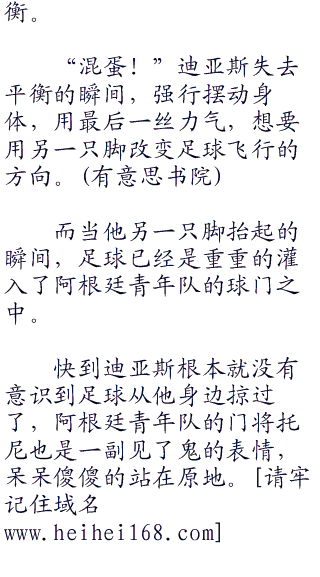 衡。
“混蛋！”迪亚斯失去
平衡的瞬间，强行摆动身
体，用最后一丝力气，想要
用另一只脚改变足球飞行的
方向。(有意思书院)
而当他另一只脚抬起的
瞬间，足球已经是重重的灌
入了阿根廷青年队的球门之
中。
快到迪亚斯根本就没有
意识到足球从他身边掠过
了，阿根廷青年队的门将托
尼也是一副见了鬼的表情，
呆呆傻傻的站在原地。[请牢
记住域名
www.heihei168.com]